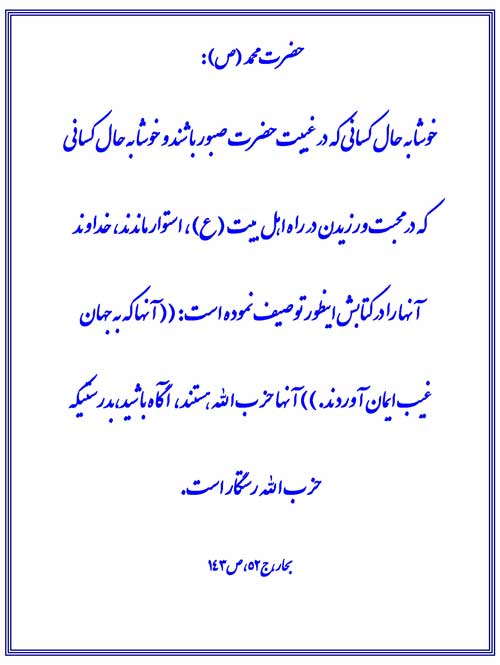 حضرت محمد (ص):
خوشا به حال کسانی که در غیبت حضرت صبور باشند و خوشا به حال کسانی
که در محبت ورزیدن در راه اهل بیت (ع)، استوار ماندند، خداوند
آنها را در کتابش اینطور توصیف نموده است: ((آنها که به جهان
غیب ایمان آوردند.)) آنها حزب الله هستند، آگاه باشید، بدرستیکه
حزب الله رستگار است.
بحار، ج٥٢، ص١٤٣